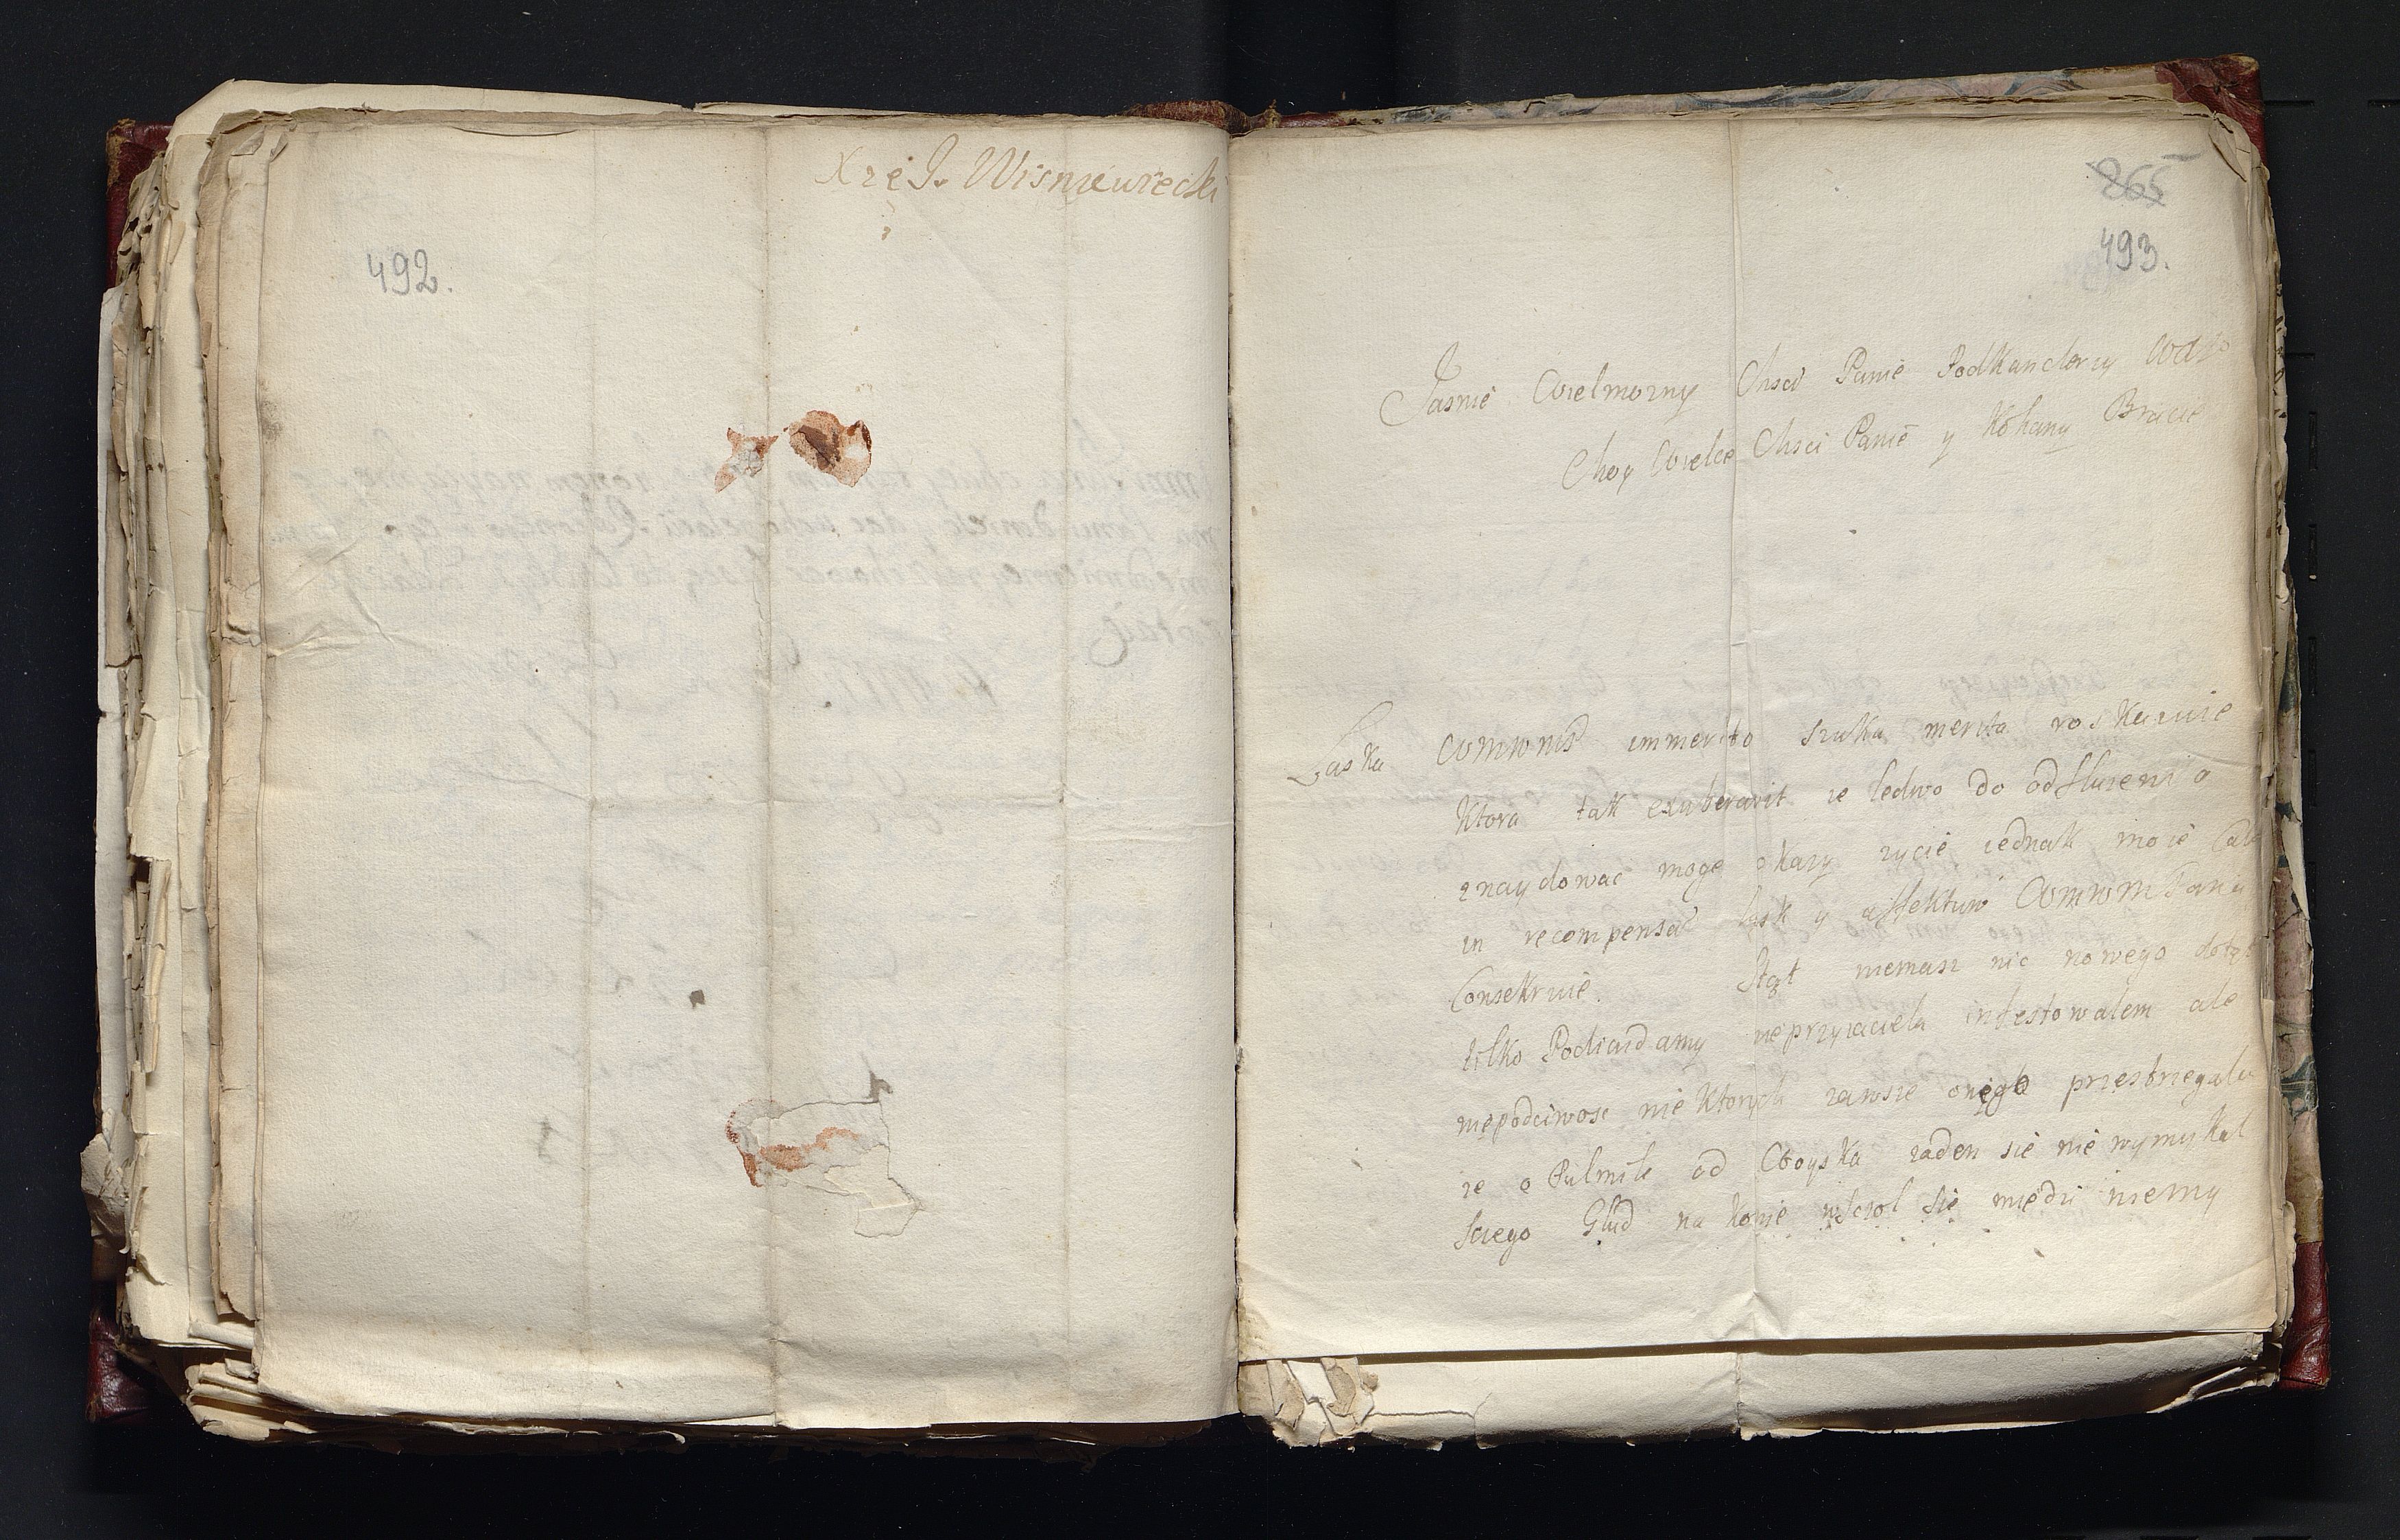 Xzę J. Wisniewiecki
492.
865
493.
Jasnie Wielmozny Mosci Panie Podkanclerzy WdXo
Moy Wielce Mosci Panie y Kohany Bracie
Laska WMWMP immerito szuka merita roskazuie
Ktora tak exuberavit ze ledwo do odsluzenia
znaydowac moge okazy zycie iednak moie Cale
in recompensa lask y affektuw WMWM Pana
Consekruie. Stąt niemasz nic nowego dotąt
tilko Podiazdamy nieprzyiaciela infestowalem ale
niepodciwosc nie Ktorych zawsze onego przestrzegala
ze o Pulmile od Woyska zaden sie nie wymykal
Glud na konie wsczol sie miedzi niemy